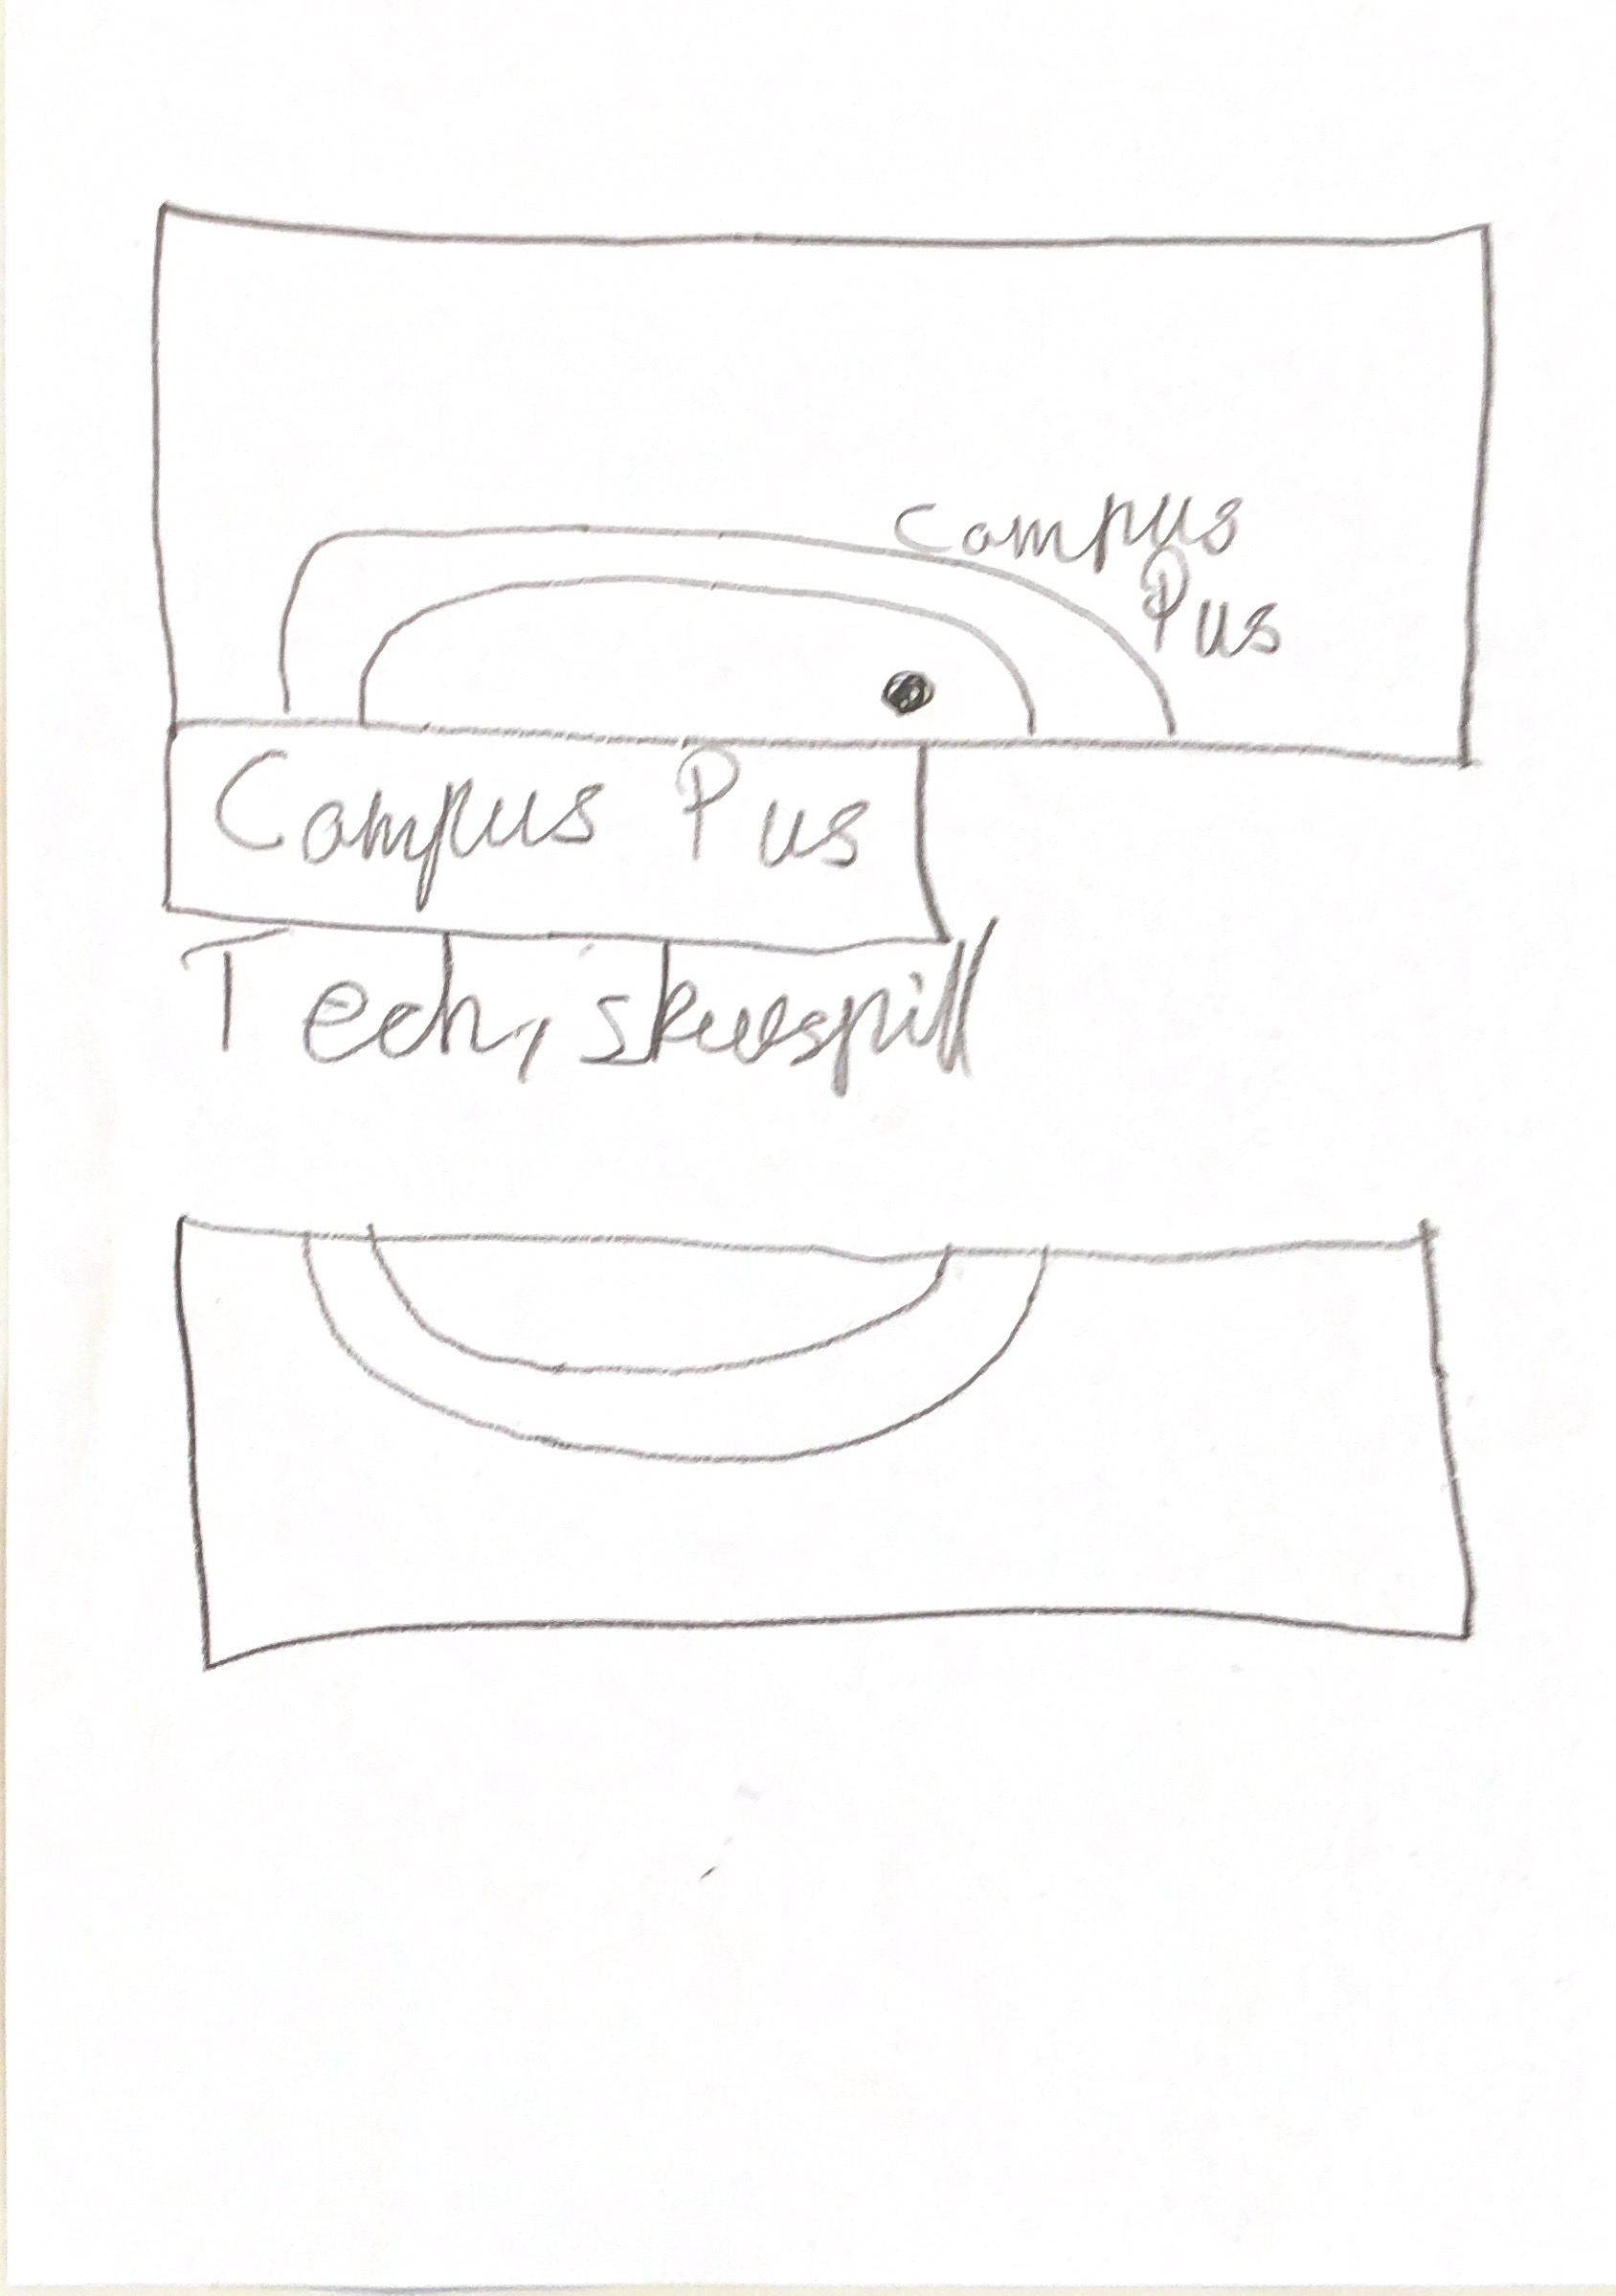 Campus
Pus
Campus Pus
Tech, skuespill